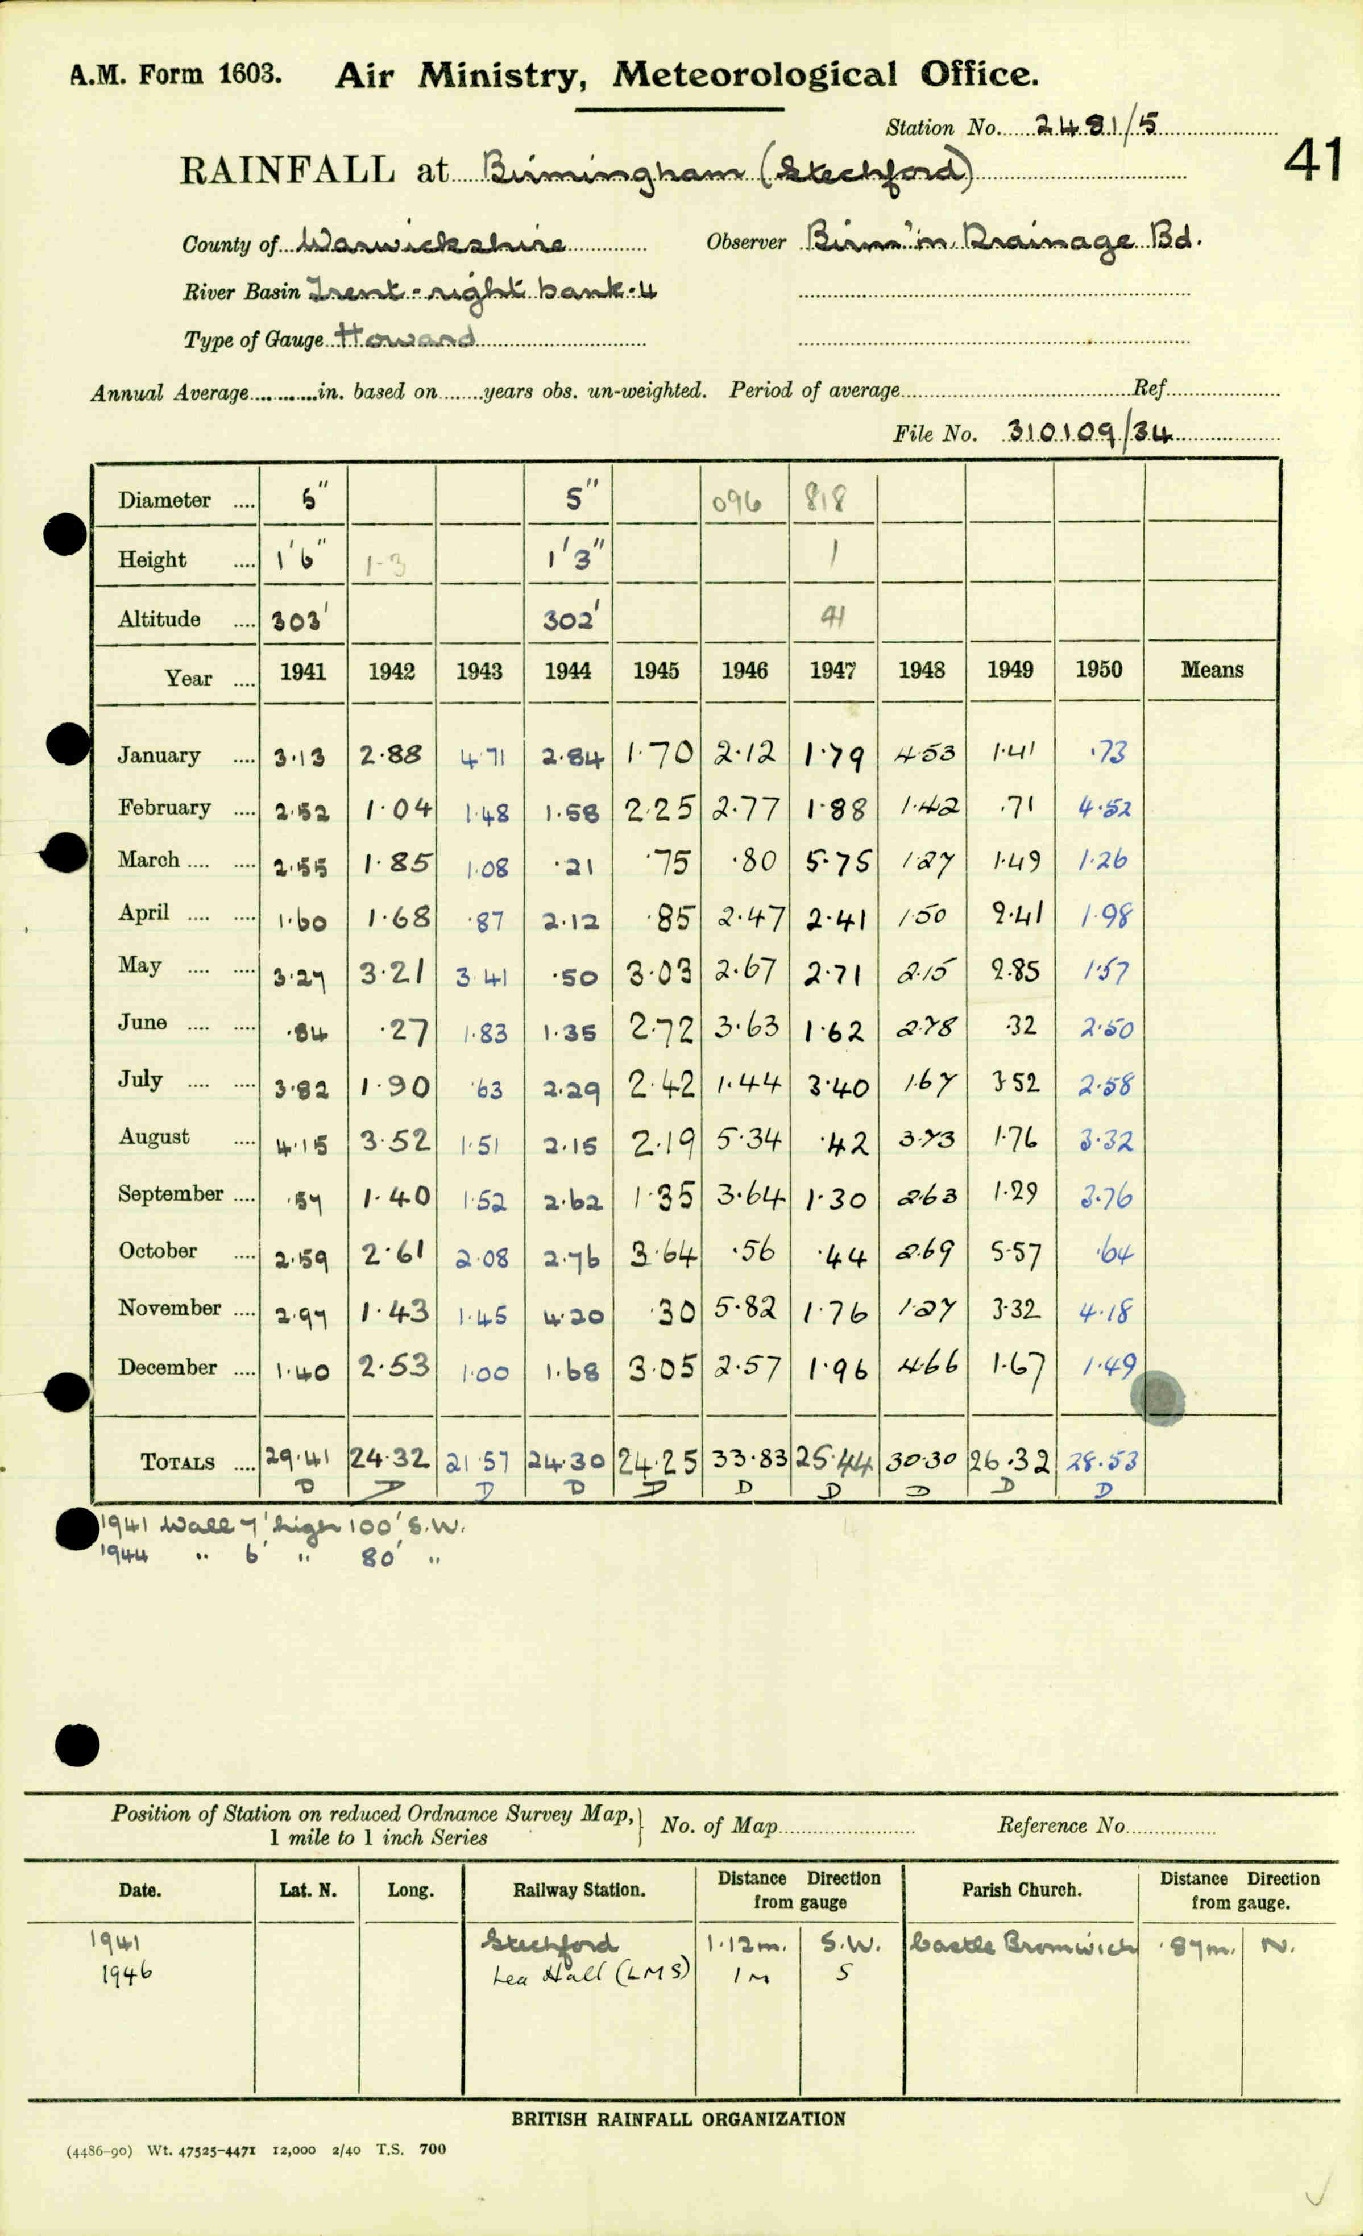 A.M. Form 1603. Air Ministry, Meteorological Office.
Station No. 2481/5
41
RAINFALL at Birmingham (Stechford)
County of Warwickshire Observer Birm'm Drainage Bd.
River Basin Trent - right bank - 4
Type of Gauge Howard
Annual Average............in. based on........years obs. un-weighted. Period of average............Ref............
File No. 310109/34
Diameter .... 5" 5" 096 818
Height .... 1'6" 1-3 1'3" 1
Altitude .... 303' 302' 41
Year .... 1941 1942 1943 1944 1945 1946 1947 1948 1949 1950 Means
January .... 3·13 2·88 4·71 2·84 1·70 2·12 1·79 4·53 1·41 ·73
February .... 2·52 1·04 1·48 1·58 2·25 2·77 1·88 1·42 ·71 4·52
March .... .... 2·55 1·85 1·08 ·21 ·75 ·80 5·75 1·27 1·49 1·26
April .... .... 1·60 1·68 ·87 2·12 ·85 2·47 2·41 1·50 2·41 1·98
May .... .... 3·27 3·21 3·41 ·50 3·03 2·67 2·71 2·15 2·85 1·57
June .... .... ·84 ·27 1·83 1·35 2·72 3·63 1·62 2·78 ·32 2·50
July .... .... 3·82 1·90 ·63 2·29 2·42 1·44 3·40 1·67 3·52 2·58
August .... 4·15 3·52 1·51 2·15 2·19 5·34 ·42 3·73 1·76 3·32
September .... ·57 1·40 1·52 2·62 1·35 3·64 1·30 2·63 1·29 3·76
October .... 2·59 2·61 2·08 2·76 3·64 ·56 ·44 2·69 5·57 ·64
November .... 2·97 1·43 1·45 4·20 ·30 5·82 1·76 1·27 3·32 4·18
December .... 1·40 2·53 1·00 1·68 3·05 2·57 1·96 4·66 1·67 1·49
TOTALS .... 29·41 24·32 21·57 24·30 24·25 33·83 25·44 30·30 26·32 28·53
D D D D D D D D D D
1941 Wall 7' high 100' S.W.
1944 " 6' " 80' "
Position of Station on reduced Ordnance Survey Map, 1 mile to 1 inch Series } No. of Map............ Reference No............
Date. Lat. N. Long. Railway Station. Distance from gauge Direction Parish Church. Distance from gauge. Direction
1941 Stechford 1·12m. S.W. Castle Bromwich ·87m. N.
1946 Lea Hall (LMS) 1 M S
BRITISH RAINFALL ORGANIZATION
(4486-90) Wt. 47525-4471 12,000 2/40 T.S. 700